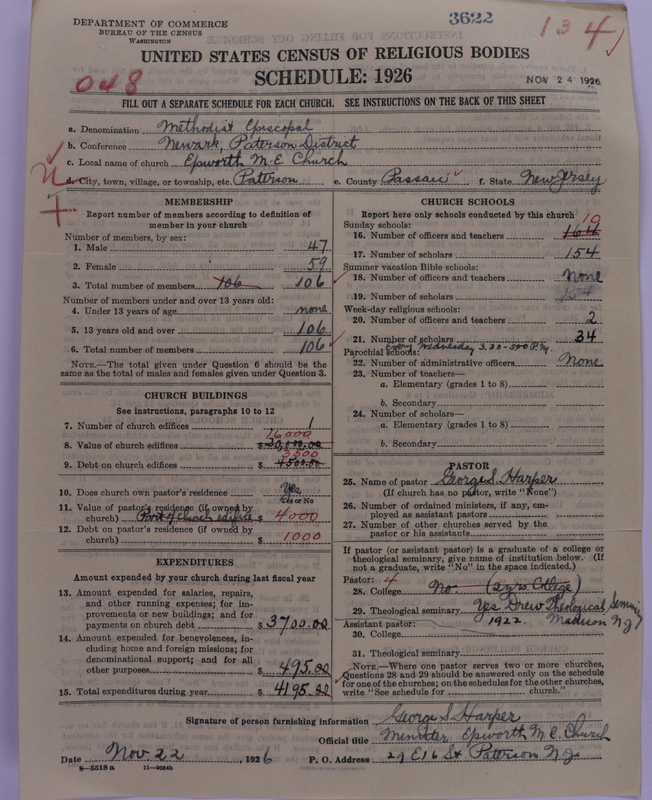 3622
134
DEPARTMENT OF COMMERCE
BUREAU OF THE CENSUS
WASHINGTON
UNITED STATES CENSUS OF RELIGIOUS BODIES
SCHEDULE: 1926
048
NOV 24 1926
FILL OUT A SEPARATE SCHEDULE FOR EACH CHURCH. SEE INSTRUCTIONS ON THE BACK OF THIS SHEET
a. Denomination Methodist Episcopal
b. Conference Newark, Paterson District
c. Local name of church Epworth M.E Church
d. City, town, village, or township, etc. Paterson e. County Passaic f. State New Jersey
MEMBERSHIP
Report number of members according to definition of
member in your church
Number of members, by sex:
1. Male 47
2. Female 59
3. Total number of members 106 106
Number of members under and over 13 years old:
4. Under 13 years of age none
5. 13 years old and over 106
6. Total number of members 106
NOTE.—The total given under Question 6 should be the
same as the total of males and females given under Question 3.
CHURCH BUILDINGS
See instructions, paragraphs 10 to 12
7. Number of church edifices 1
16000
8. Value of church edifices $ 20,000.00
3500
9. Debt on church edifices $ 4500.00
10. Does church own pastor's residence Yes
Yes or No
11. Value of pastor's residence (if owned by
church) Part of church edifice $ 4000
12. Debt on pastor's residence (if owned by
church) $ 1000
EXPENDITURES
Amount expended by your church during last fiscal year
13. Amount expended for salaries, repairs,
and other running expenses; for im-
provements or new buildings; and for
payments on church debt $ 3700.00
14. Amount expended for benevolences, in-
cluding home and foreign missions; for
denominational support; and for all
other purposes $ 495.00
15. Total expenditures during year $ 4195.00
CHURCH SCHOOLS
Report here only schools conducted by this church
Sunday schools: 19
16. Number of officers and teachers
17. Number of scholars 154
Summer vacation Bible schools:
18. Number of officers and teachers None
19. Number of scholars 154
Week-day religious schools:
20. Number of officers and teachers 2
21. Number of scholars 34
Every Wednesday 3.30-5:00 P.M.
Parochial schools:
22. Number of administrative officers None
23. Number of teachers—
a. Elementary (grades 1 to 8)
b. Secondary
24. Number of scholars—
a. Elementary (grades 1 to 8)
b. Secondary
PASTOR
25. Name of pastor George S. Harper
(If church has no pastor, write "None")
26. Number of ordained ministers, if any, em-
ployed as assistant pastors
27. Number of other churches served by the
pastor or his assistants
If pastor (or assistant pastor) is a graduate of a college or
theological seminary, give name of institution below. (If
not a graduate, write "No" in the space indicated.)
Pastor: 4
28. College No (2 yrs College)
29. Theological seminary Yes Drew Theological Seminary
Assistant pastor: 1922. Madison N.J.
30. College
31. Theological seminary
NOTE.—Where one pastor serves two or more churches,
Questions 28 and 29 should be answered only on the schedule
for one of the churches; on the schedules for the other churches,
write "See schedule for church."
Signature of person furnishing information George S. Harper
Official title Minister Epworth M.E. Church
Date Nov. 22, 1926 P. O. Address 29 E 16 St Paterson N.J.
8—5518a 11—9084b